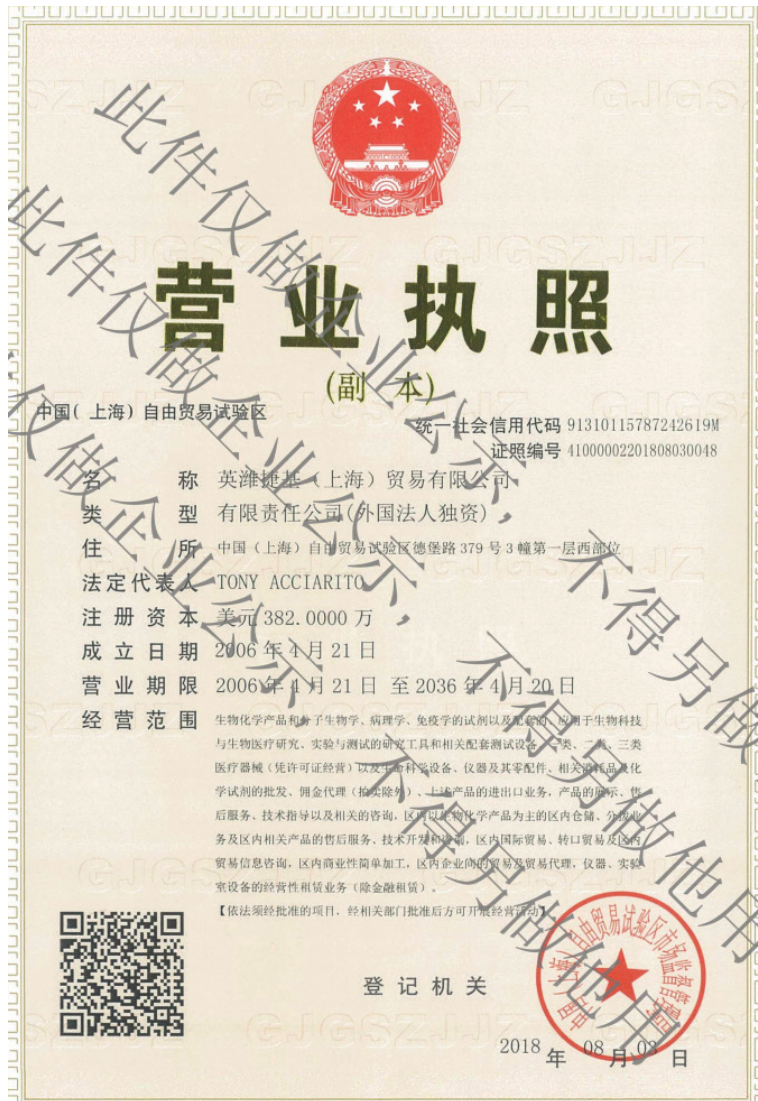 营业执照
(副 本)
中国(上海)自由贸易试验区
统一社会信用代码 91310115787242619M
证照编号 41000002201808030048
名称 英潍捷基(上海)贸易有限公司
类型 有限责任公司(外国法人独资)
住所 中国(上海)自由贸易试验区德堡路379号3幢第一层西部位
法定代表人 TONY ACCIARITO
注册资本 美元382.0000万
成立日期 2006年4月21日
营业期限 2006年4月21日 至 2036年4月20日
经营范围 生物化学产品和分子生物学、病理学、免疫学的试剂以及配套的、应用于生物科技
与生物医疗研究、实验与测试的研究工具和相关配套测试设备、一类、二类、三类
医疗器械(凭许可证经营)以及生命科学设备、仪器及其零配件、相关消耗品及化
学试剂的批发、佣金代理(拍卖除外)、上述产品的进出口业务,产品的展示、售
后服务、技术指导以及相关的咨询,区内以生物化学产品为主的区内仓储、分拨业
务及区内相关产品的售后服务、技术开发和咨询,区内国际贸易、转口贸易及区内
贸易信息咨询,区内商业性简单加工,区内企业间的贸易及贸易代理,仪器、实验
室设备的经营性租赁业务(除金融租赁)。
【依法须经批准的项目,经相关部门批准后方可开展经营活动】
登记机关
中国(上海)自由贸易试验区市场监督管理局
2018年08月03日
此件仅做企业公示,不得另做他用
此件仅做企业公示,不得另做他用
仅做企业公示,不得另做他用